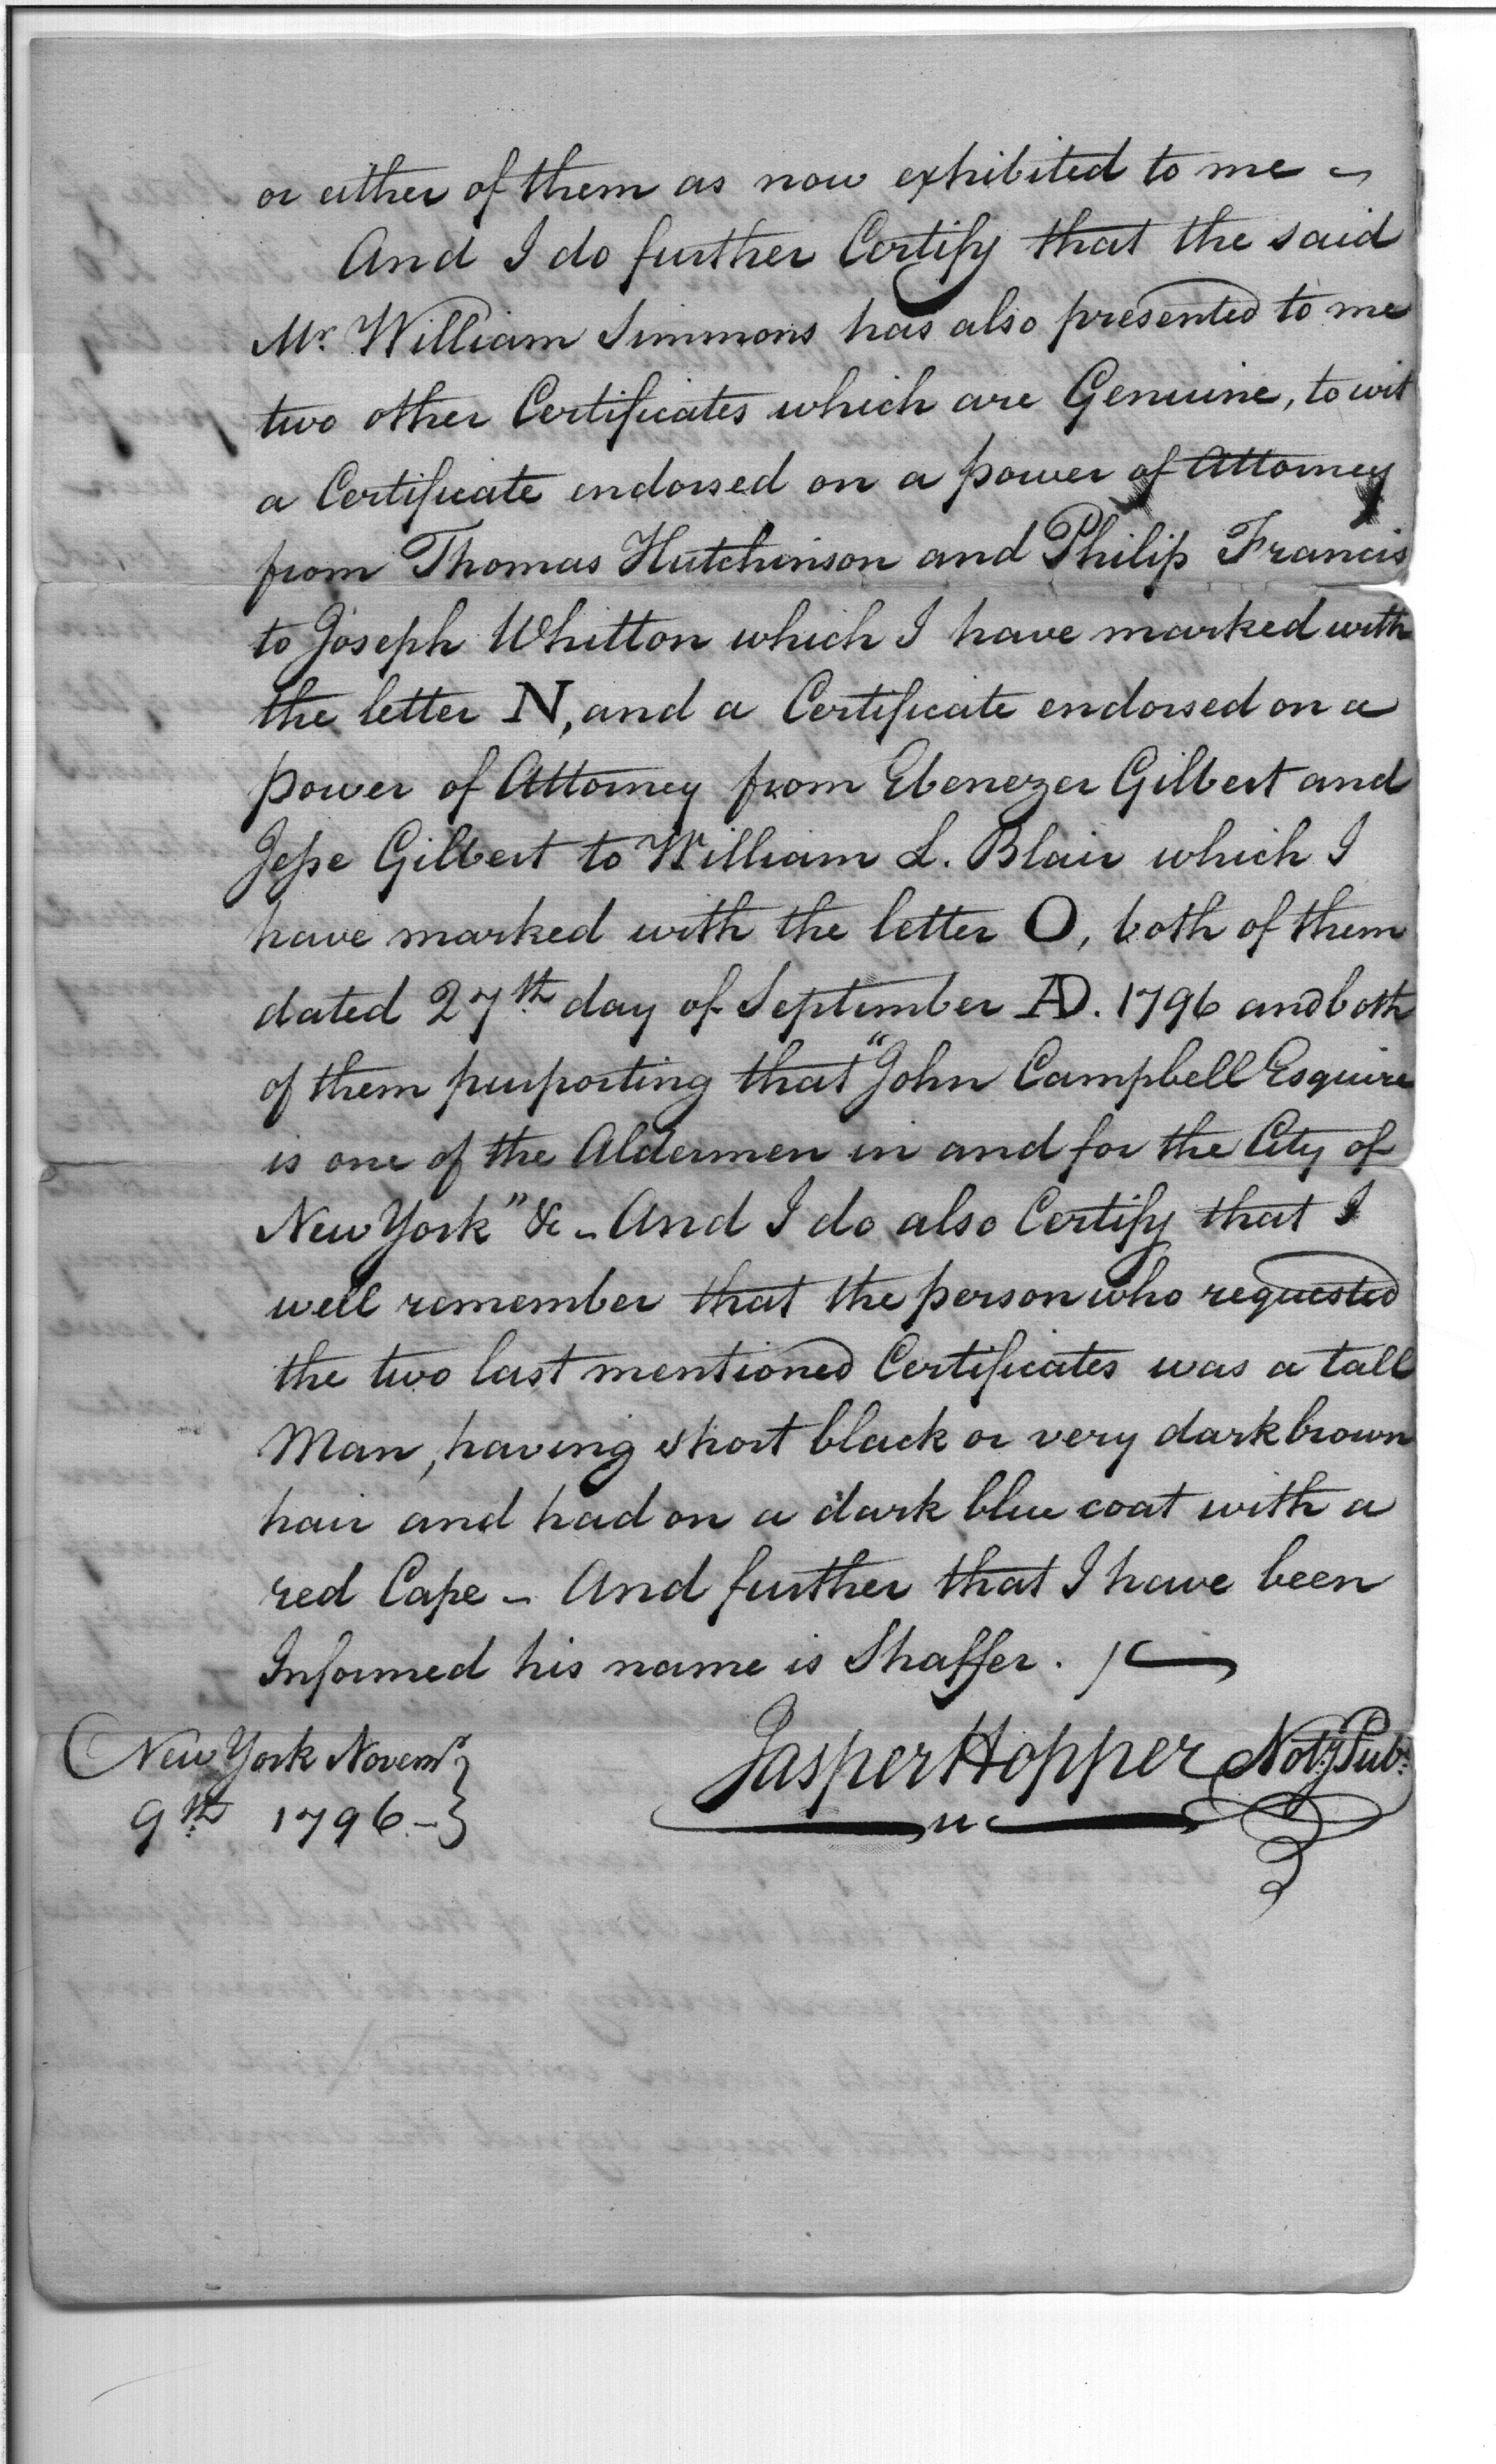 or either of them as now exhibited to me –
And I do further Certify that the said
Mr. William Simmons has also presented to me
two other Certificates which are Genuine, to wit
a Certificate endorsed on a power of Attorney
from Thomas Hutchinson and Philip Francis
to Joseph Whitton which I have marked with
the letter N, and a Certificate endorsed on a
power of Attorney from Ebenezer Gilbert and
Jesse Gilbert to William L. Blair which I
have marked with the letter O, both of them
dated 27th day of September AD. 1796 and both
of them purporting that "John Campbell Esquire
is one of the Aldermen in and for the City of
New York" &c – And I do also Certify that I
well remember that the person who requested
the two last mentioned Certificates was a tall
Man, having short black or very dark brown
hair and had on a dark blue coat with a
red Cape – And further that I have been
Informed his name is Shaffer.
Jasper Hopper Noty. Pub.
New York Novemr
9th 1796 –